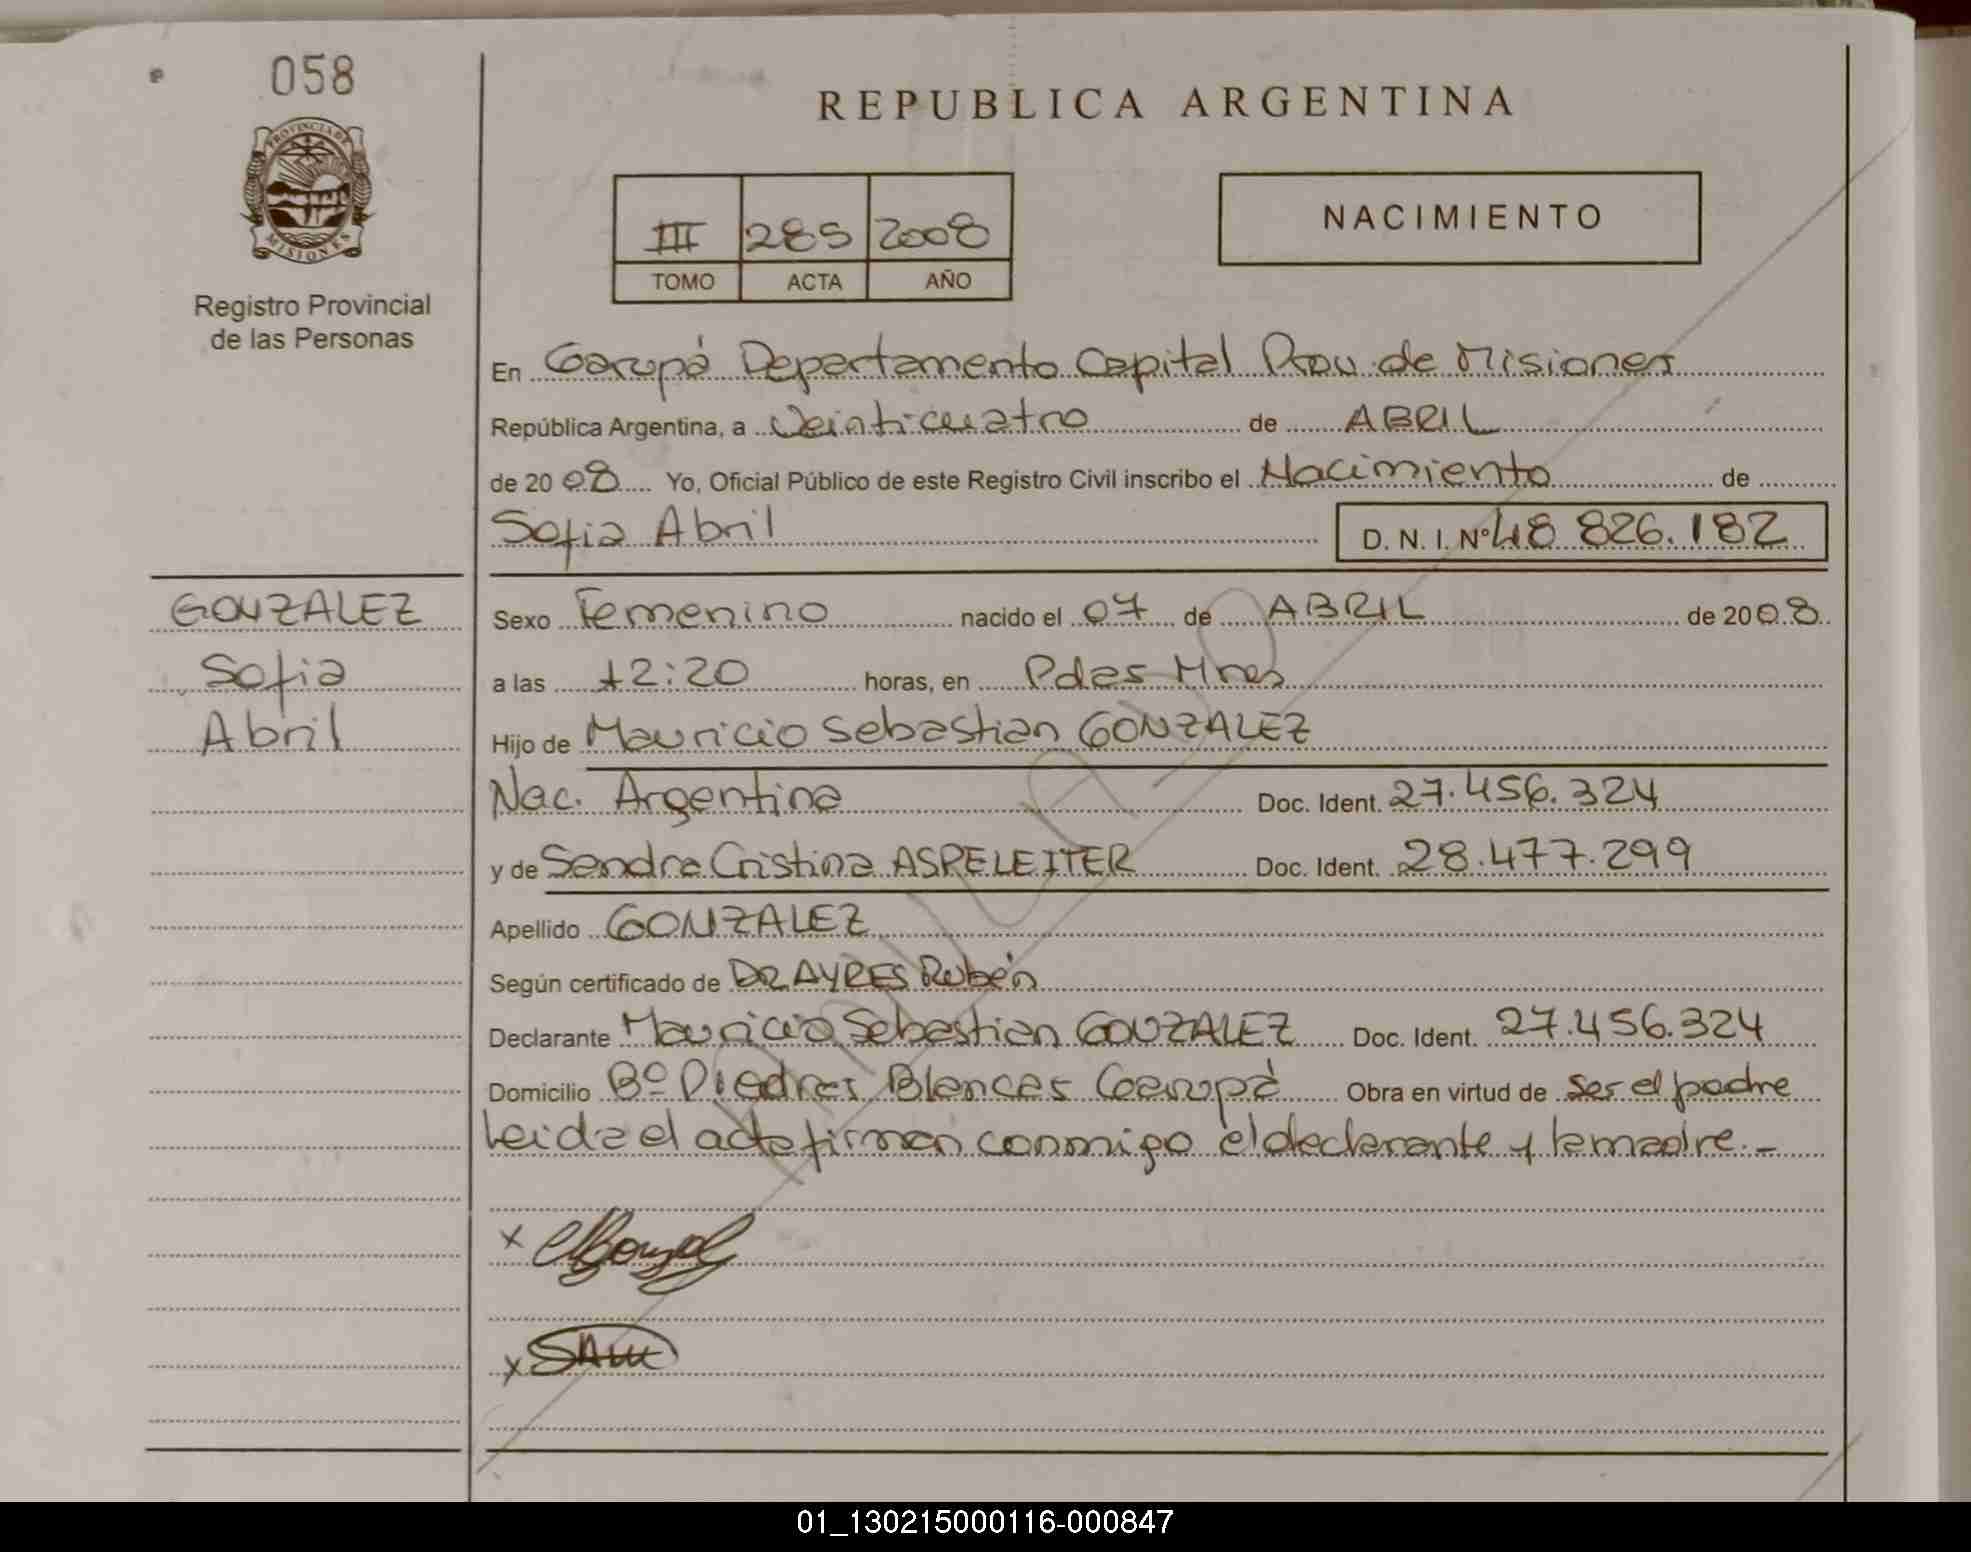 058
PROVINCIA DE
MISIONES
Registro Provincial
de las Personas
REPUBLICA ARGENTINA
III 285 2008
TOMO ACTA AÑO
NACIMIENTO
En Garupá Departamento Capital Prov. de Misiones
República Argentina, a Veinticuatro de ABRIL
de 2008 Yo, Oficial Público de este Registro Civil inscribo el Nacimiento de
Sofia Abril D. N. I. Nº 48 826.182
GONZALEZ
Sofia
Abril
Sexo Femenino nacido el 07 de ABRIL de 2008
a las 12:20 horas, en Pdas Mnes
Hijo de Mauricio Sebastian GONZALEZ
Nac. Argentina Doc. Ident. 27.456.324
y de Sandra Cristina ASPELEITER Doc. Ident. 28.477.299
Apellido GONZALEZ
Según certificado de DR AYRES Rubén
Declarante Mauricio Sebastian GONZALEZ Doc. Ident. 27.456.324
Domicilio Bº Piedras Blancas Garupá Obra en virtud de ser el padre
Leida el acta firman conmigo el declarante y la madre.-
x
x
01_130215000116-000847